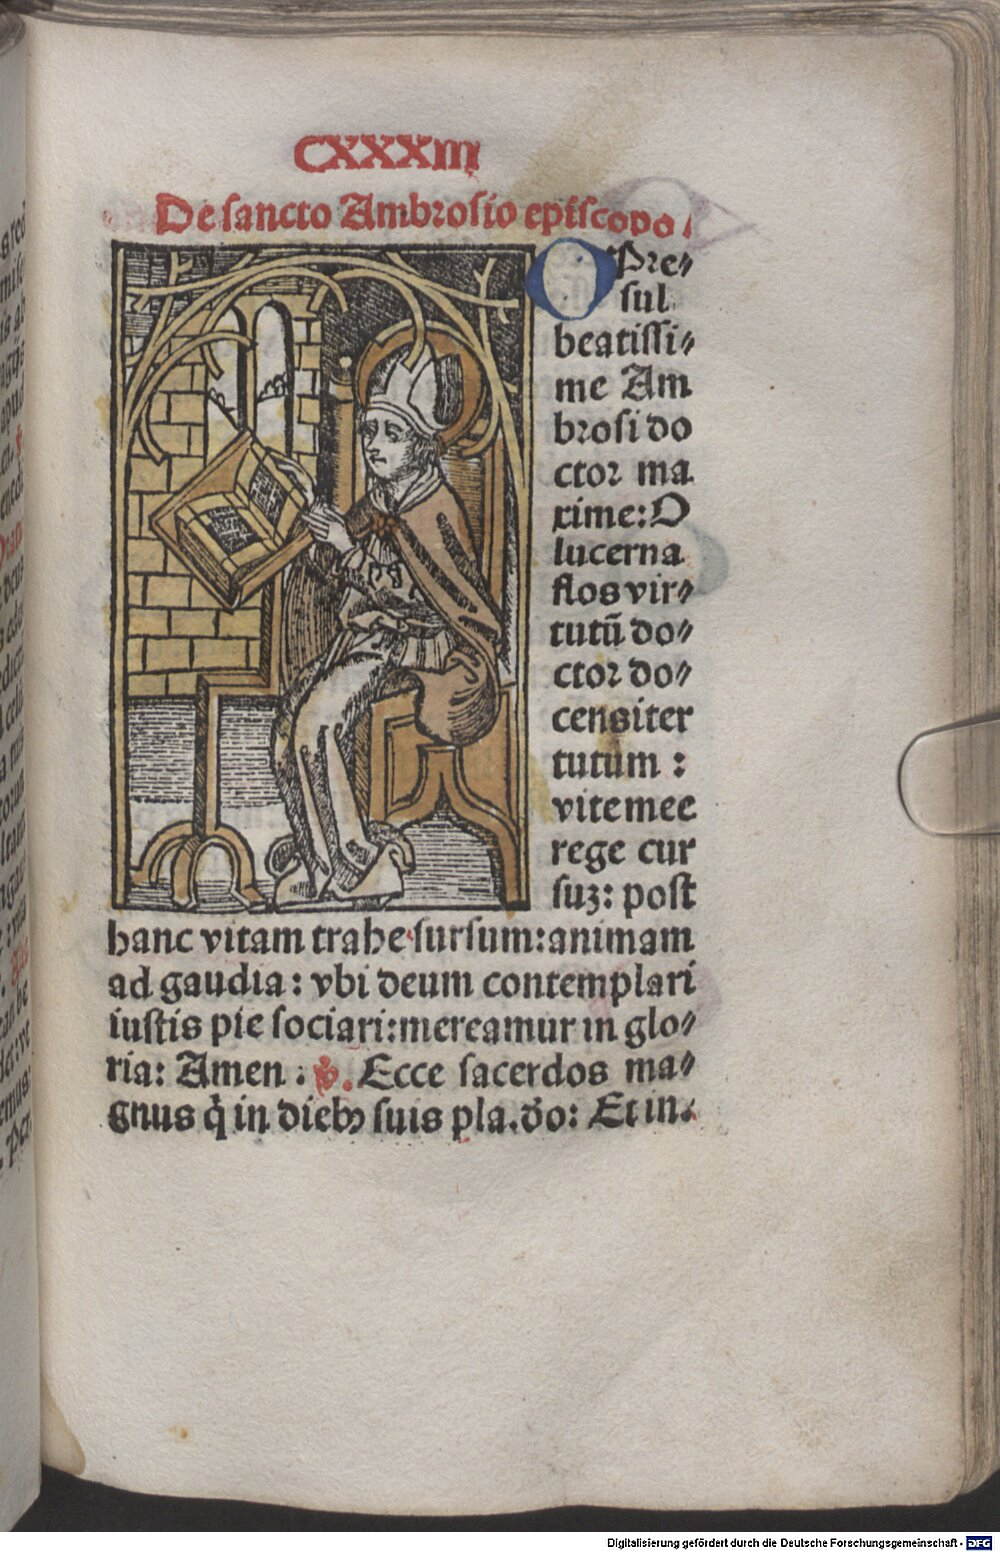 CXXXIII
De sancto Ambrosio episcopo.
O Pre⸗
sul
beatissi⸗
me Am
brosi do
ctor ma
xime: O
lucerna
flos vir⸗
tutū do⸗
ctor do⸗
censiter
tutum :
vite mee
rege cur
suꝫ: post
hanc vitam trahe sursum: animam
ad gaudia: vbi deum contemplari
iustis pie sociari: mereamur in glo⸗
ria: Amen : ℣. Ecce sacerdos ma⸗
gnus q̇ in dieb⁹ suis pla. do: Et in.
Digitalisierung gefördert durch die Deutsche Forschungsgemeinschaft - DFG